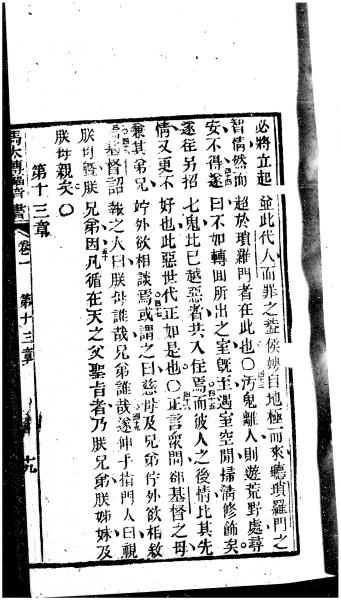 必將立起並此代人而罪之蓋侯妙自地極而來聽瑣羅門之
智慧然而超於瑣羅門者在此也〇汚鬼離人則遊荒野處尋
安不得遂曰不如轉回所出之室旣至遇室空閒掃淸修飾矣
遂往另招七鬼比已越惡者共入住焉而彼人之後情比其先
情又更不好也此惡世代正如是也〇正言衆間卻基督之母
兼其弟兄竚外欲相談焉或謂之曰慈母及兄弟竚外欲相敘
焉基督詔報之人曰朕母誰哉兄弟誰哉遂伸手指門人曰視
朕母曁朕兄弟因凡循在天之父聖旨者乃朕兄弟朕姊妹及
朕母親矣〇
第十三章
馬太傳福音書 卷一 第十三章 十九